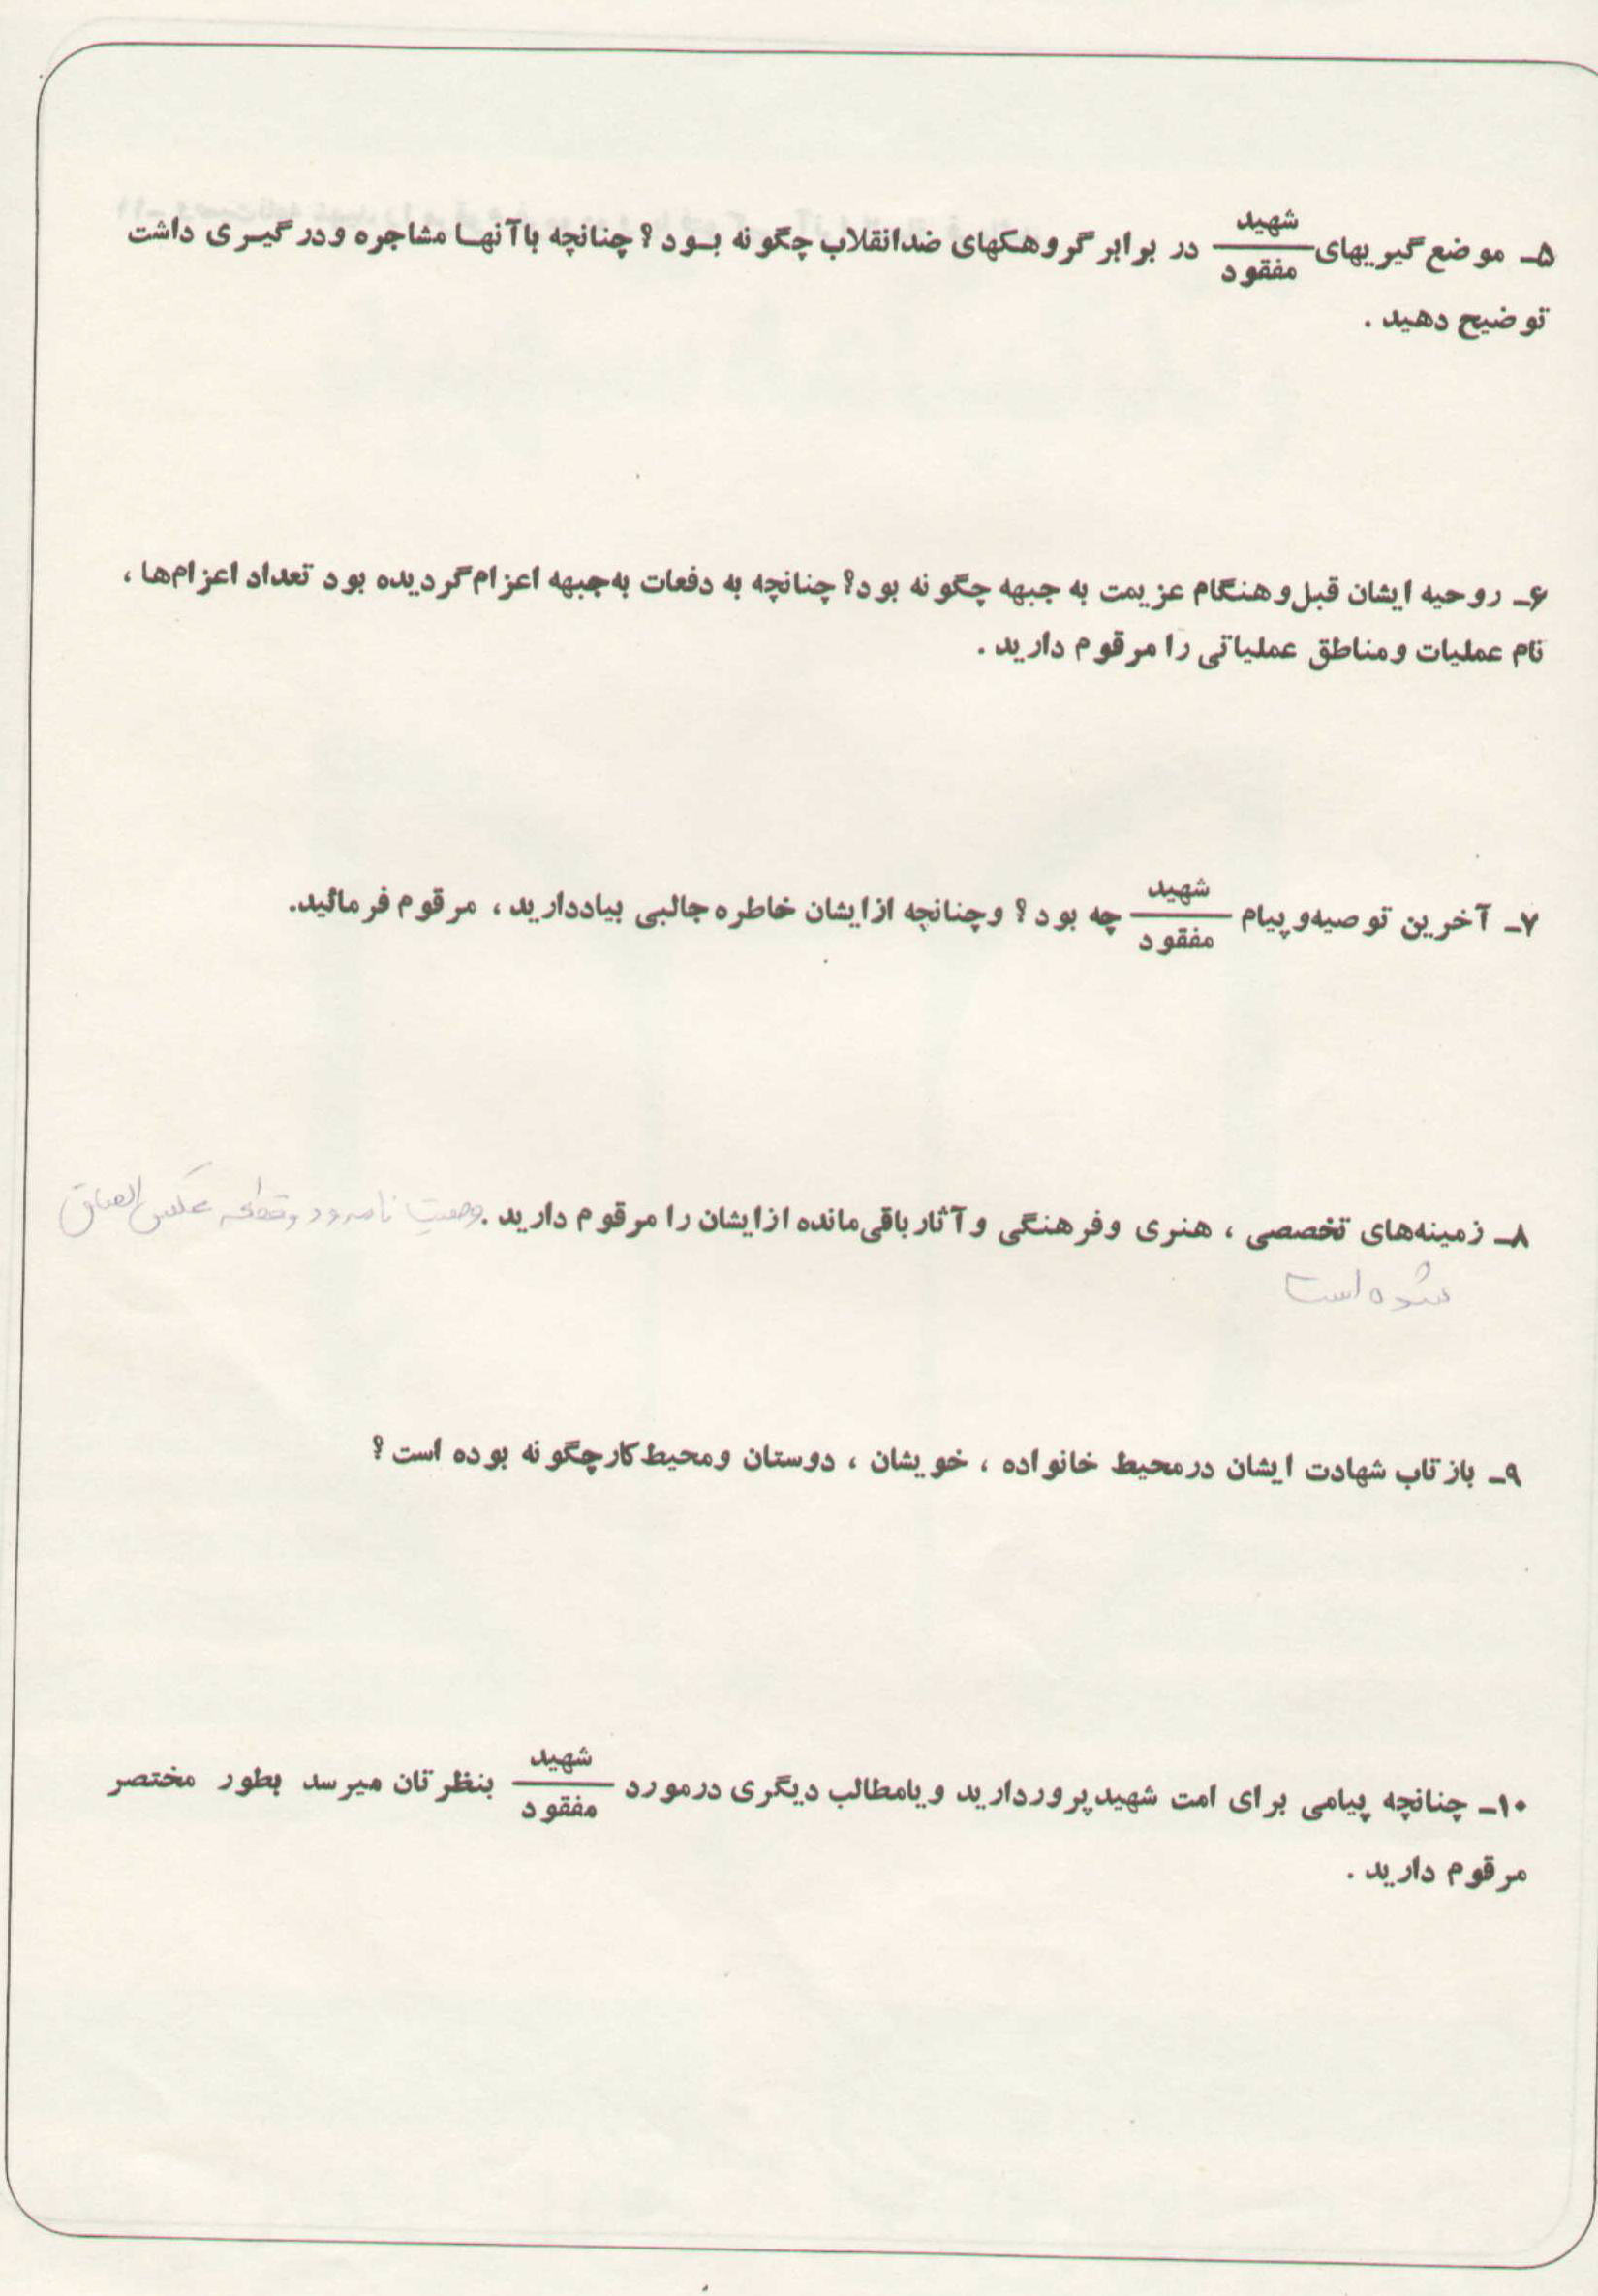 ۵ـ موضع گیریهای شهید/مفقود در برابر گروهکهای ضدانقلاب چگونه بود؟ چنانچه باآنها مشاجره ودرگیری داشت
توضیح دهید .
۶ـ روحیه ایشان قبل وهنگام عزیمت به جبهه چگونه بود؟ چنانچه به دفعات به جبهه اعزام گردیده بود تعداد اعزام‌ها ،
نام عملیات ومناطق عملیاتی را مرقوم دارید .
۷ـ آخرین توصیه وپیام شهید/مفقود چه بود؟ وچنانچه ازایشان خاطره جالبی بیاددارید ، مرقوم فرمائید.
۸ـ زمینه‌های تخصصی ، هنری وفرهنگی وآثار باقی‌مانده ازایشان را مرقوم دارید . وصیت نامه و دو قطعه عکس الصاق
شده است
۹ـ بازتاب شهادت ایشان درمحیط خانواده ، خویشان ، دوستان ومحیط کارچگونه بوده است ؟
۱۰ـ چنانچه پیامی برای امت شهیدپروردارید ویامطالب دیگری درمورد شهید/مفقود بنظرتان میرسد بطور مختصر
مرقوم دارید .